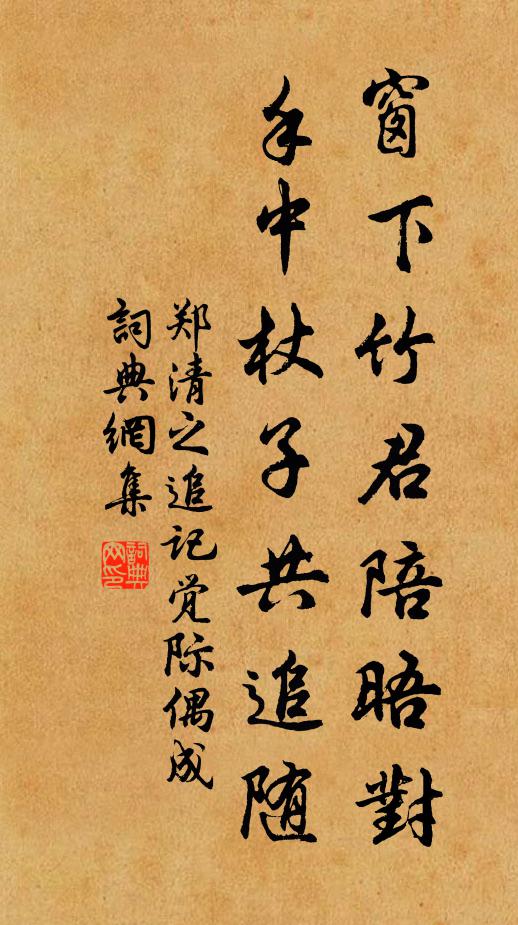 窗下竹君陪晤對
手中杖子共追随
郑清之追记觉际偶成
詞典網集
詞典
网印